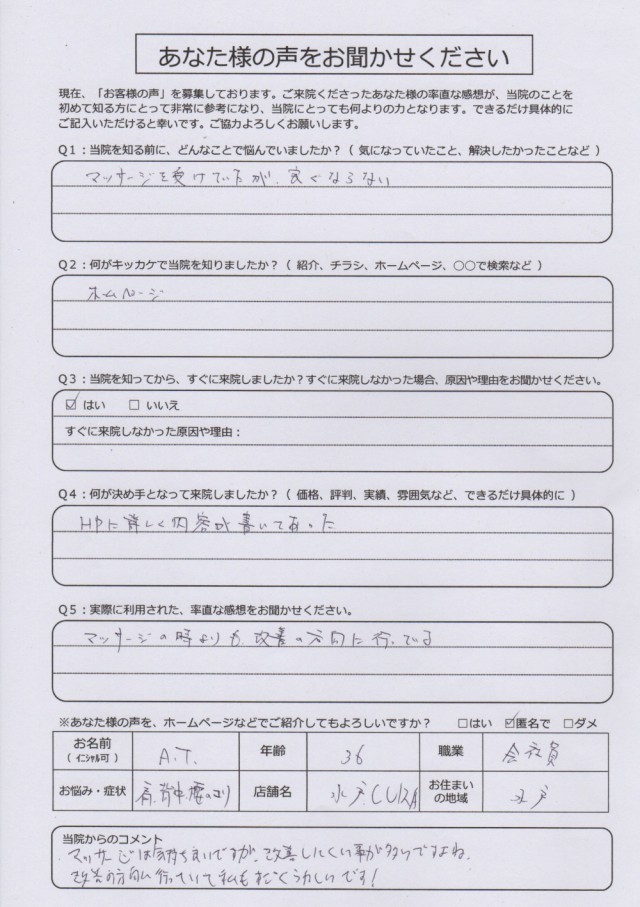 あなた様の声をお聞かせください
現在、「お客様の声」を募集しております。ご来院くださったあなた様の率直な感想が、当院のことを
初めて知る方にとって非常に参考になり、当院にとっても何よりの力となります。できるだけ具体的に
ご記入いただけると幸いです。ご協力よろしくお願いします。
Q1：当院を知る前に、どんなことで悩んでいましたか？（ 気になっていたこと、解決したかったことなど ）
マッサージを受けていたが、良くならない
Q2：何がキッカケで当院を知りましたか？（ 紹介、チラシ、ホームページ、○○で検索など ）
ホームページ
Q3：当院を知ってから、すぐに来院しましたか？すぐに来院しなかった場合、原因や理由をお聞かせください。
☑ はい　□ いいえ
すぐに来院しなかった原因や理由：
Q4：何が決め手となって来院しましたか？（ 価格、評判、実績、雰囲気など、できるだけ具体的に ）
HPに詳しく内容が書いてあった
Q5：実際に利用された、率直な感想をお聞かせください。
マッサージの時よりも、改善の方向に行っている
※あなた様の声を、ホームページなどでご紹介してもよろしいですか？　□はい　☑匿名で　□ダメ
お名前（ ｲﾆｼｬﾙ可 ）　A.T.　年齢　36　職業　会社員
お悩み・症状　肩、背中、腰のコリ　店舗名　水戸CURA　お住まいの地域　水戸
当院からのコメント
マッサージは気持ち良いですが、改善しにくい事が多いですよね。
改善の方向に行っていて私もすごくうれしいです！